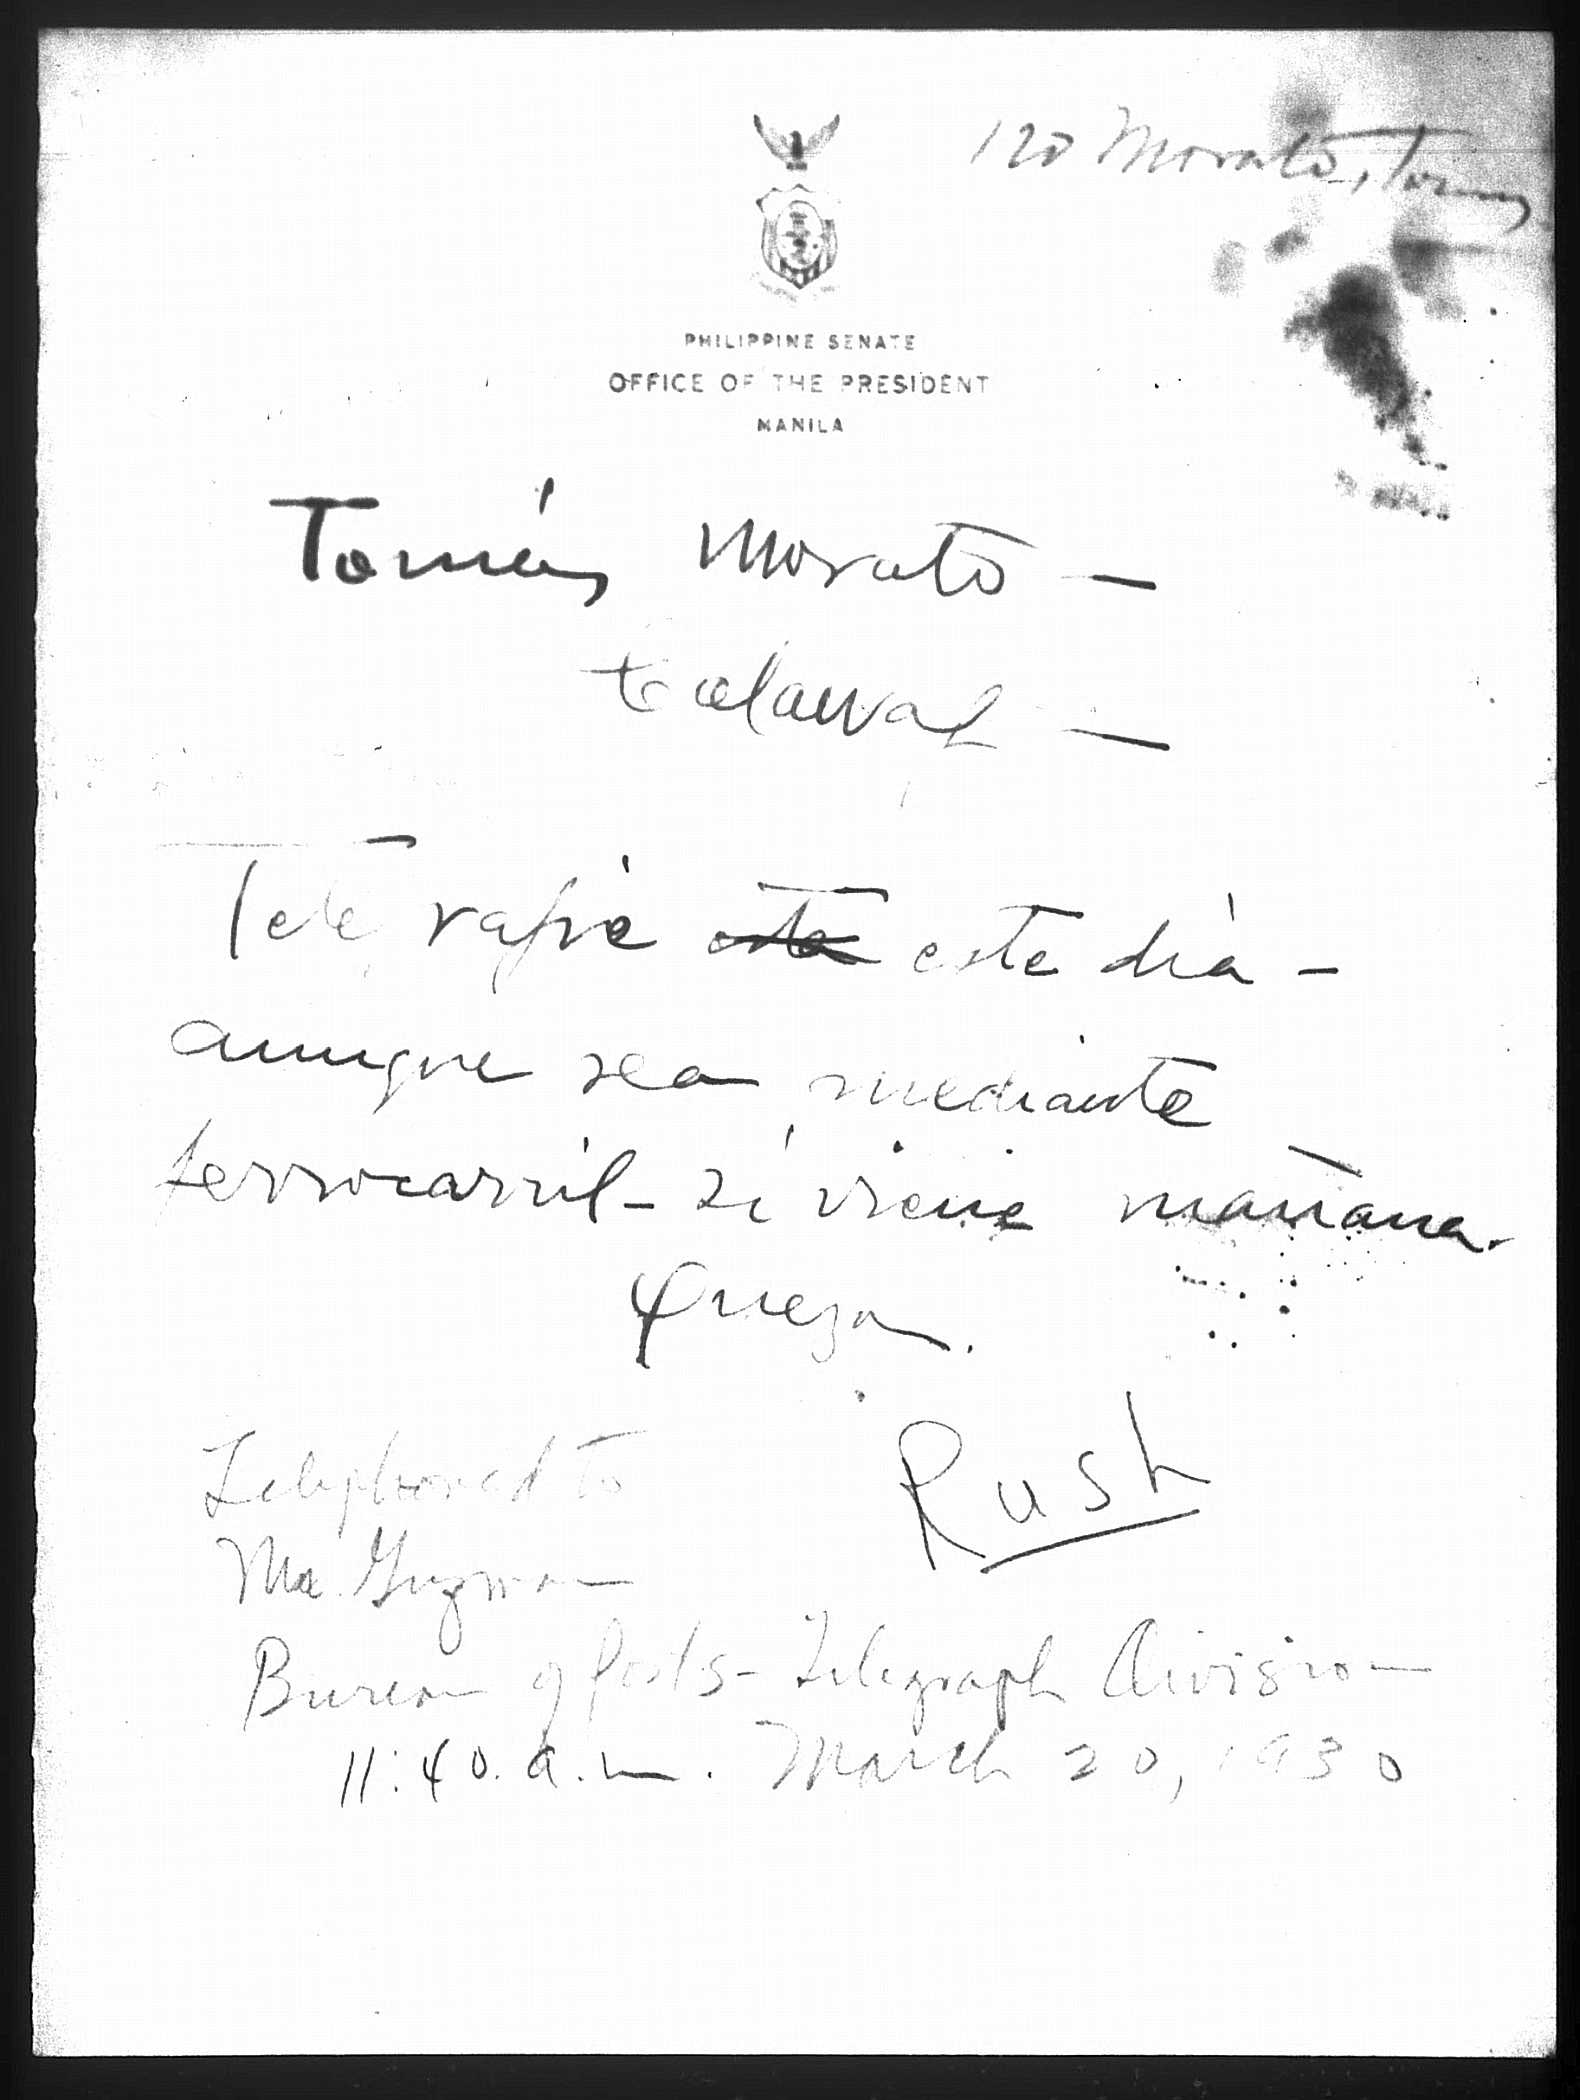 120 Morato, Tomas
PHILIPPINE SENATE
OFFICE OF THE PRESIDENT
MANILA
Tomás Morato —
Calauag —
Telegrafié este día -
aunque sea mediante
ferrocarril - si viene mañana.
Quezon.
Rush
Telephoned to
Mr. Guzman
Bureau of Posts - Telegraph Division
11:40 a.m. March 20, 1930